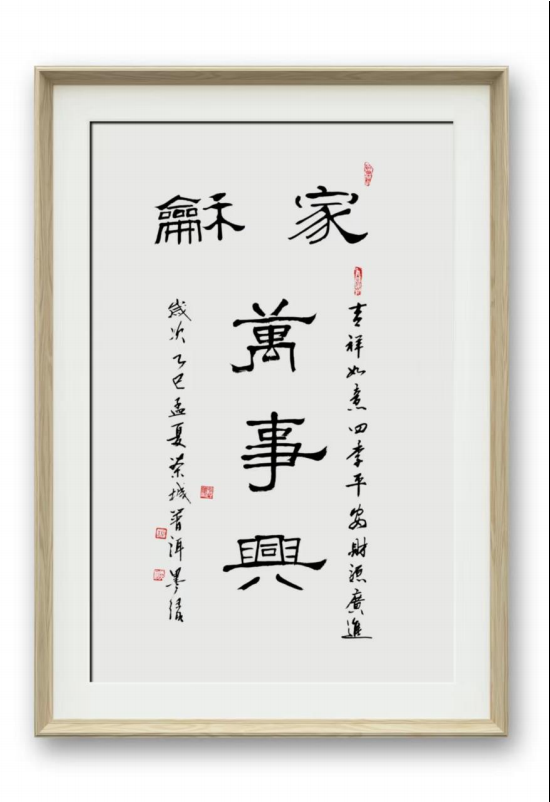 家龢
萬事興
吉祥如意四季平安財源廣進
歲次乙巳孟夏茶城普洱墨